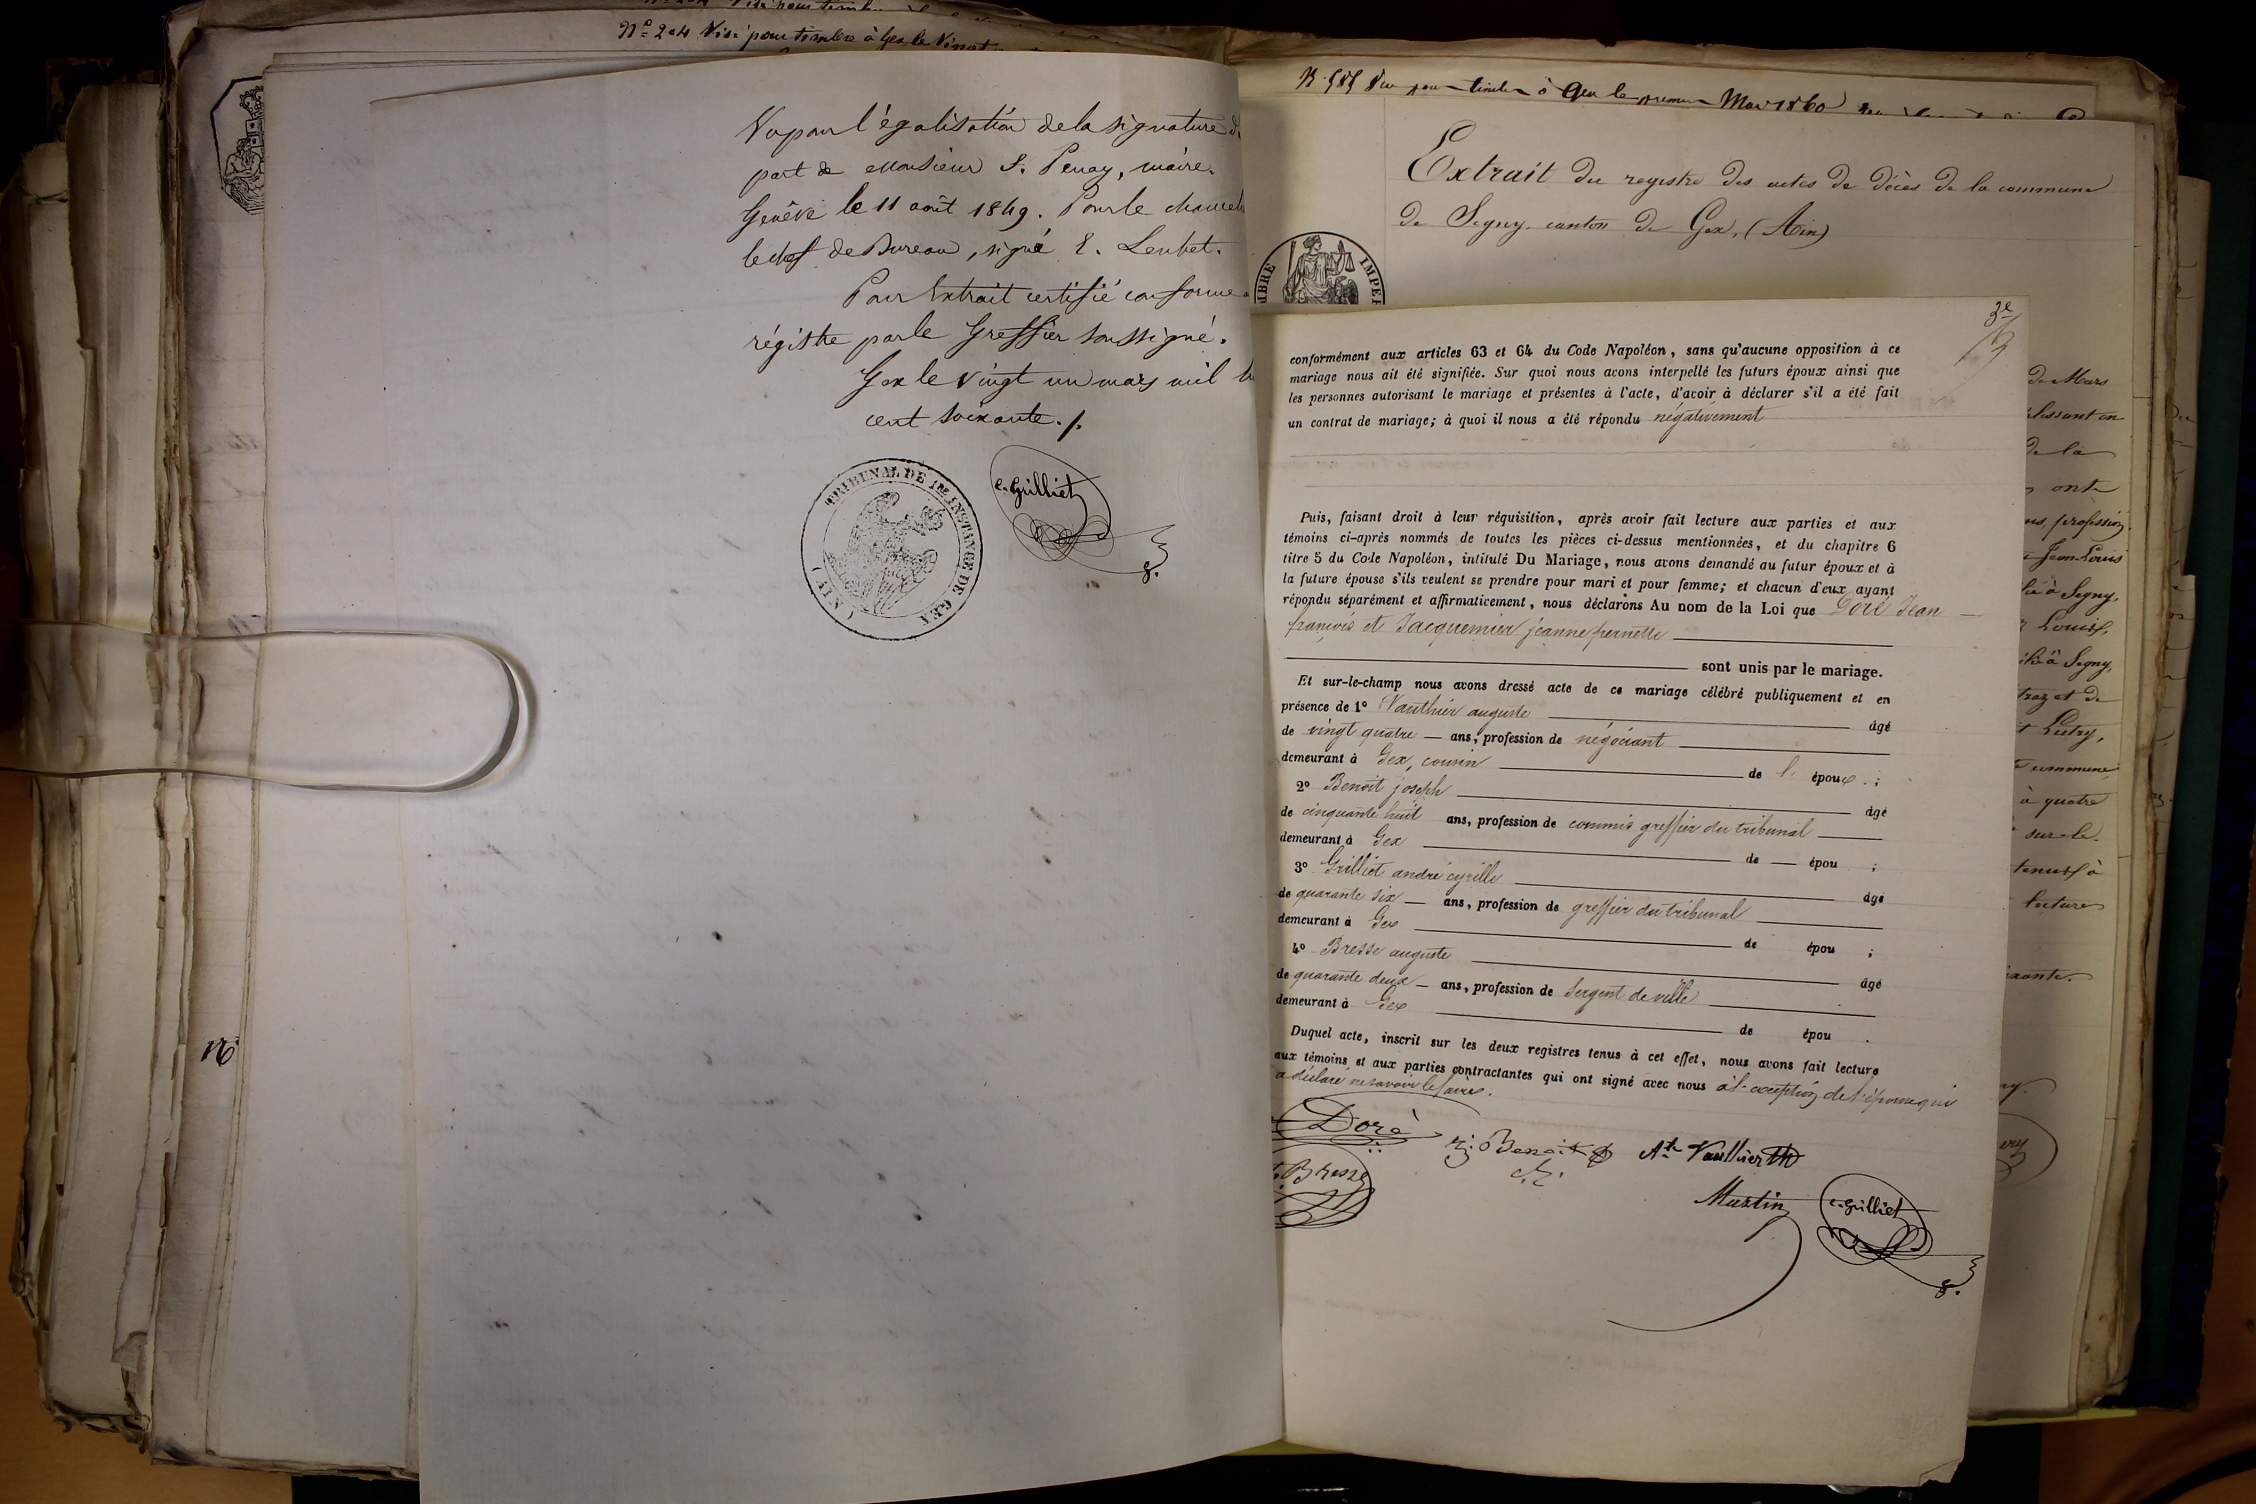 Nº 204 Visé pour timbre à Gex le Vingt
Vu pour l'égalisation de la signature d
part de Monsieur S. Penay, maire.
Genève le 11 août 1849. Pour le chancel
le chef de Bureau, signé E. Leubet.
Pour Extrait certifié conforme
régistre par le Greffier soussigné.
Gex le vingt un mars mil
cent soixante ./.
TRIBUNAL DE 1RE INSTANCE DE GEX (AIN)
c. Grilliet
Nº
Mars 1860
Extrait du registre des actes de décès de la commune
de Segny, canton de Gex, (Ain)
TIMBRE IMPÉ
3e
conformément aux articles 63 et 64 du Code Napoléon, sans qu'aucune opposition à ce
mariage nous ait été signifiée. Sur quoi nous avons interpellé les futurs époux ainsi que
les personnes autorisant le mariage et présentes à l'acte, d'avoir à déclarer s'il a été fait
un contrat de mariage; à quoi il nous a été répondu négativement
Puis, faisant droit à leur réquisition, après avoir fait lecture aux parties et aux
témoins ci-après nommés de toutes les pièces ci-dessus mentionnées, et du chapitre 6
titre 5 du Code Napoléon, intitulé Du Mariage, nous avons demandé au futur époux et à
la future épouse s'ils veulent se prendre pour mari et pour femme; et chacun d'eux ayant
répondu séparément et affirmativement, nous déclarons Au nom de la Loi que Doré Jean
françois et Jacquemier jeanne pernette
sont unis par le mariage.
Et sur-le-champ nous avons dressé acte de ce mariage célébré publiquement et en
présence de 1º Vauthier auguste âgé
de vingt quatre ans, profession de négociant
demeurant à Gex, cousin de l' époux ;
2º Benoit joseph âgé
de cinquante huit ans, profession de commis greffier du tribunal
demeurant à Gex de épou ;
3º Grilliet andré cyrille âgé
de quarante six ans, profession de greffier du tribunal
demeurant à Gex de épou ;
4º Bresse auguste âgé
de quarante deux ans, profession de Sergent de ville
demeurant à Gex de épou .
Duquel acte, inscrit sur les deux registres tenus à cet effet, nous avons fait lecture
aux témoins et aux parties contractantes qui ont signé avec nous à l'exception de l'épouse qui
a déclaré ne savoir le faire.
Doré
Benoit
Ate Vauthier
Bresse
Martin
c. Grilliet
de Mars
de la
ont
profession
Jean Louis
à Segny,
Louis,
à Segny,
et de
Lutry,
commune
à quatre
sur le
tenus à
lecture